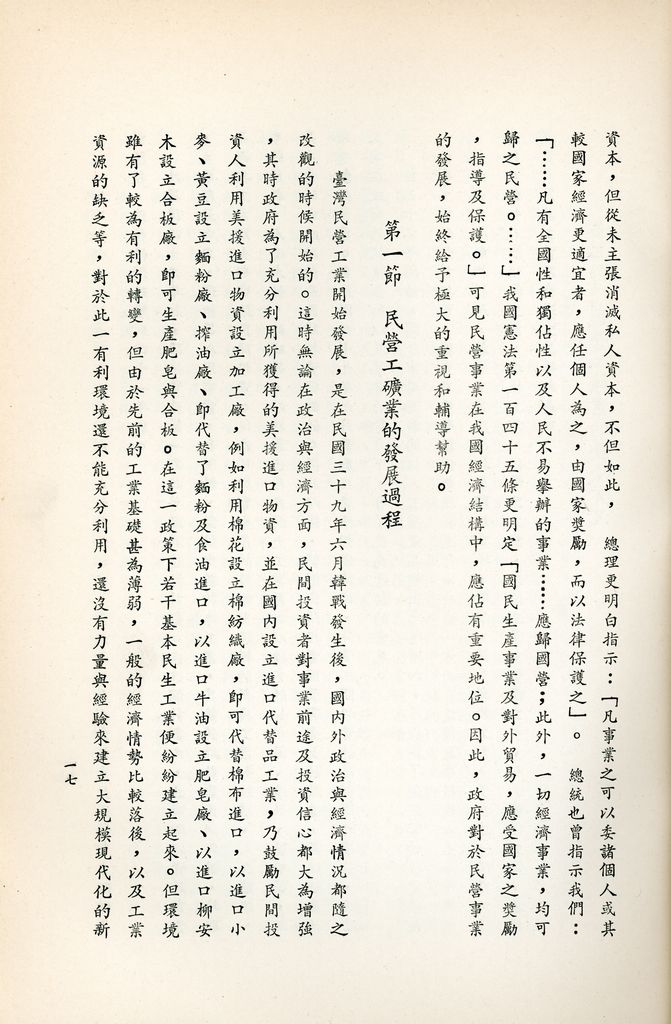 資本，但從未主張消滅私人資本，不但如此，　總理更明白指示：「凡事業之可以委諸個人或其
較國家經濟更適宜者，應任個人為之，由國家獎勵，而以法律保護之」。　總統也曾指示我們：
「……凡有全國性和獨佔性以及人民不易舉辦的事業……應歸國營；此外，一切經濟事業，均可
歸之民營。……」我國憲法第一百四十五條更明定「國民生產事業及對外貿易，應受國家之獎勵
，指導及保護。」可見民營事業在我國經濟結構中，應佔有重要地位。因此，政府對於民營事業
的發展，始終給予極大的重視和輔導幫助。
第一節　民營工礦業的發展過程
臺灣民營工業開始發展，是在民國三十九年六月韓戰發生後，國內外政治與經濟情況都隨之
改觀的時候開始的。這時無論在政治與經濟方面，民間投資者對事業前途及投資信心都大為增強
，其時政府為了充分利用所獲得的美援進口物資，並在國內設立進口代替品工業，乃鼓勵民間投
資人利用美援進口物資設立加工廠，例如利用棉花設立棉紡織廠，即可代替棉布進口，以進口小
麥、黃豆設立麵粉廠、搾油廠、即代替了麵粉及食油進口，以進口牛油設立肥皂廠、以進口柳安
木設立合板廠，即可生產肥皂與合板。在這一政策下若干基本民生工業便紛紛建立起來。但環境
雖有了較為有利的轉變，但由於先前的工業基礎甚為薄弱，一般的經濟情勢比較落後，以及工業
資源的缺乏等，對於此一有利環境還不能充分利用，還沒有力量與經驗來建立大規模現代化的新
一七